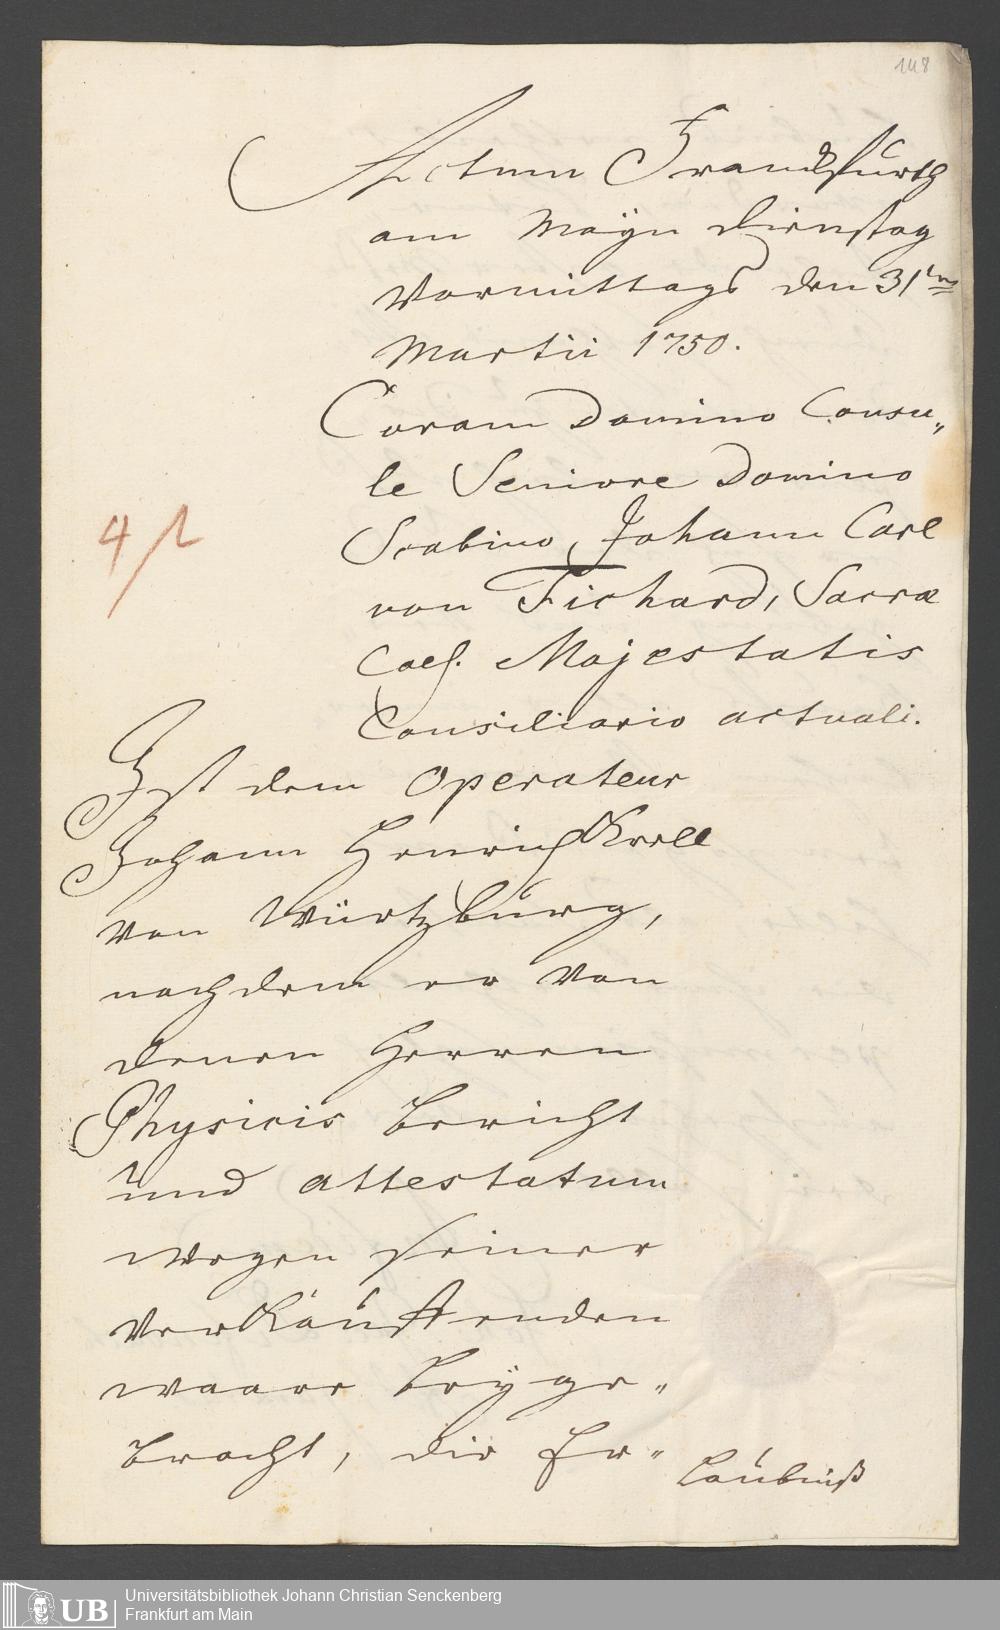 148
Actum Franckfurth
am Mayn Dienstag
Vormittags den 31ten
Martii 1750.
Coram Domino Consu„
le Seniore Domino
Scabino, Johann Carl
von Fichard, Sacræ
Caes. Majestatis
Consiliario actuali.
4/2
Ist dem Operateur
Johann Henrich Kroll
von Würtzburg,
nachdem er von
denen Herren
Physicis Bericht
und attestatum
wegen seiner
verkäuffenden
waare beyge„
bracht, die Er„
laubnüß
UB
Universitätsbibliothek Johann Christian Senckenberg
Frankfurt am Main